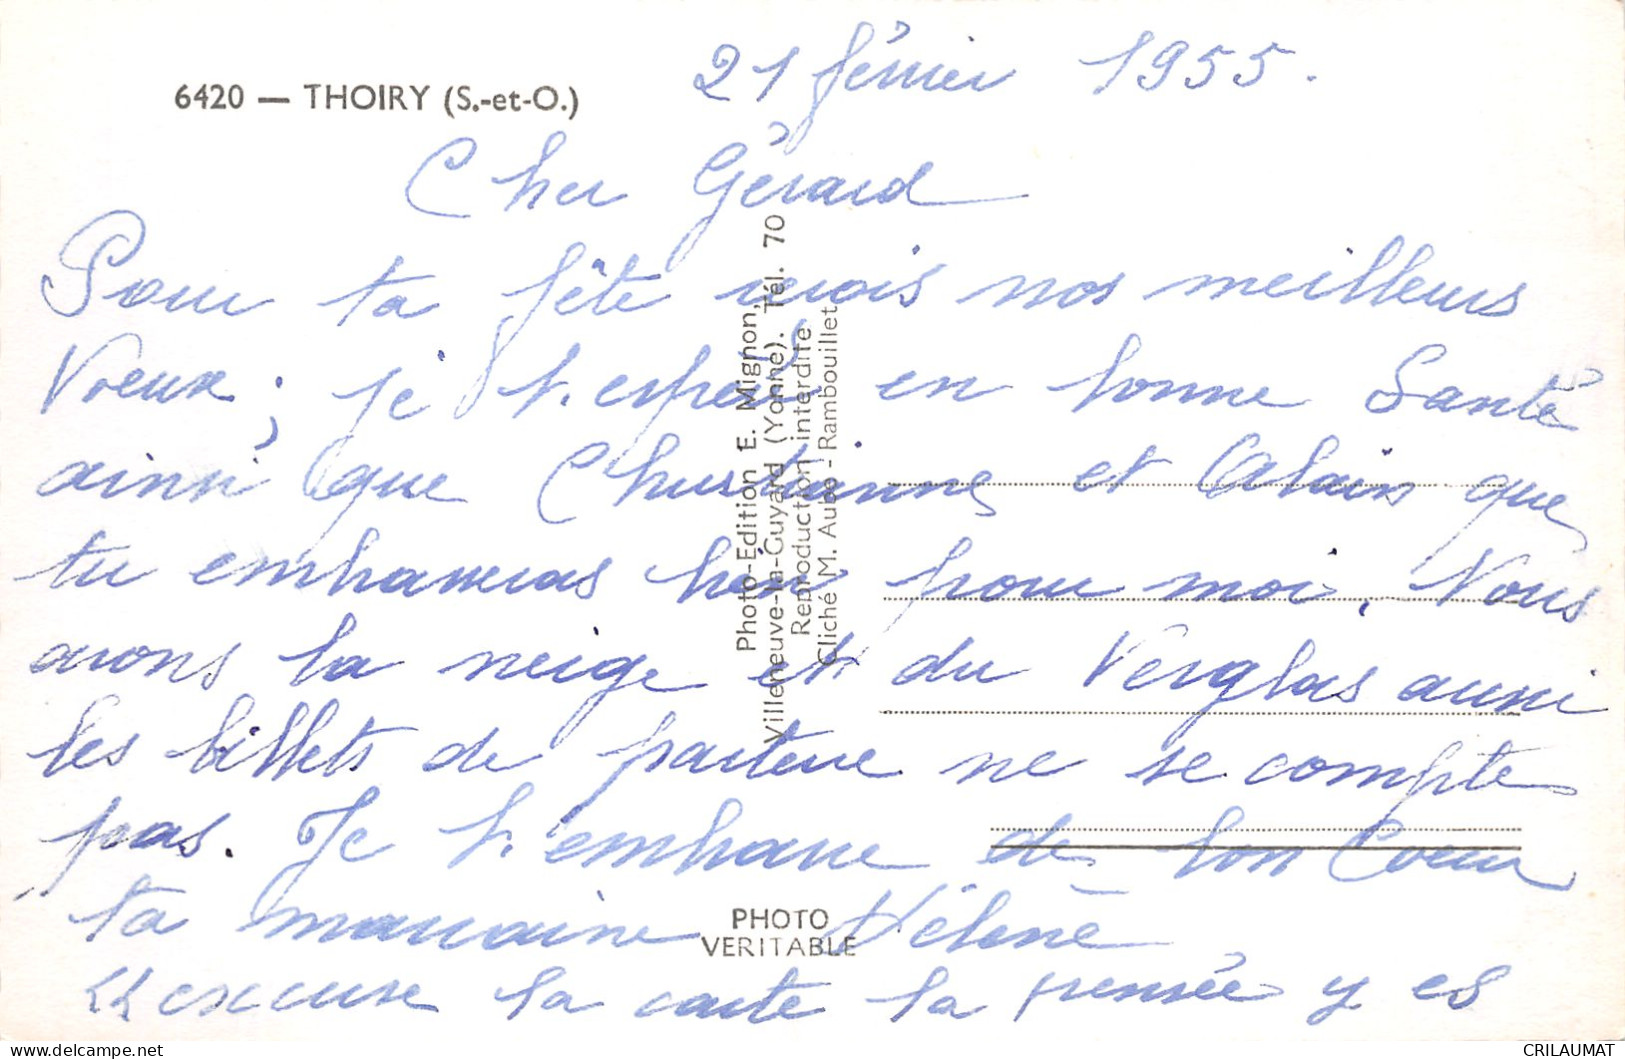 21 février 1955.
6420 — THOIRY (S.-et-O.)
Cher Gérard
Pour ta fête reçois nos meilleurs
Voeux ; je t'espère en bonne Santé
ainsi que Christianne et Alain que
tu embrasseras bien pour moi. Nous
avons la neige et du Verglas aussi
les billets de parterre ne se compte
pas. Je t'embrasse de bon Coeur
ta marraine Hélène
excuse la carte la pensée y es
Photo-Edition E. Mignon,
Villeneuve-la-Guyard (Yonne). Tél. 70
Reproduction interdite
Cliché M. Aubo - Rambouillet
PHOTO
VERITABLE
CRILAUMAT